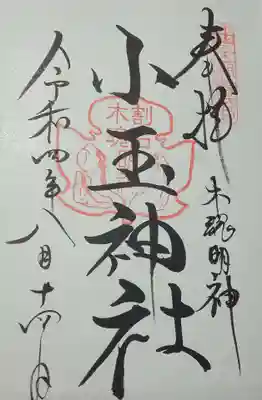 奉拝
木魂明神
小玉神社
令和四年八月十四日
木割